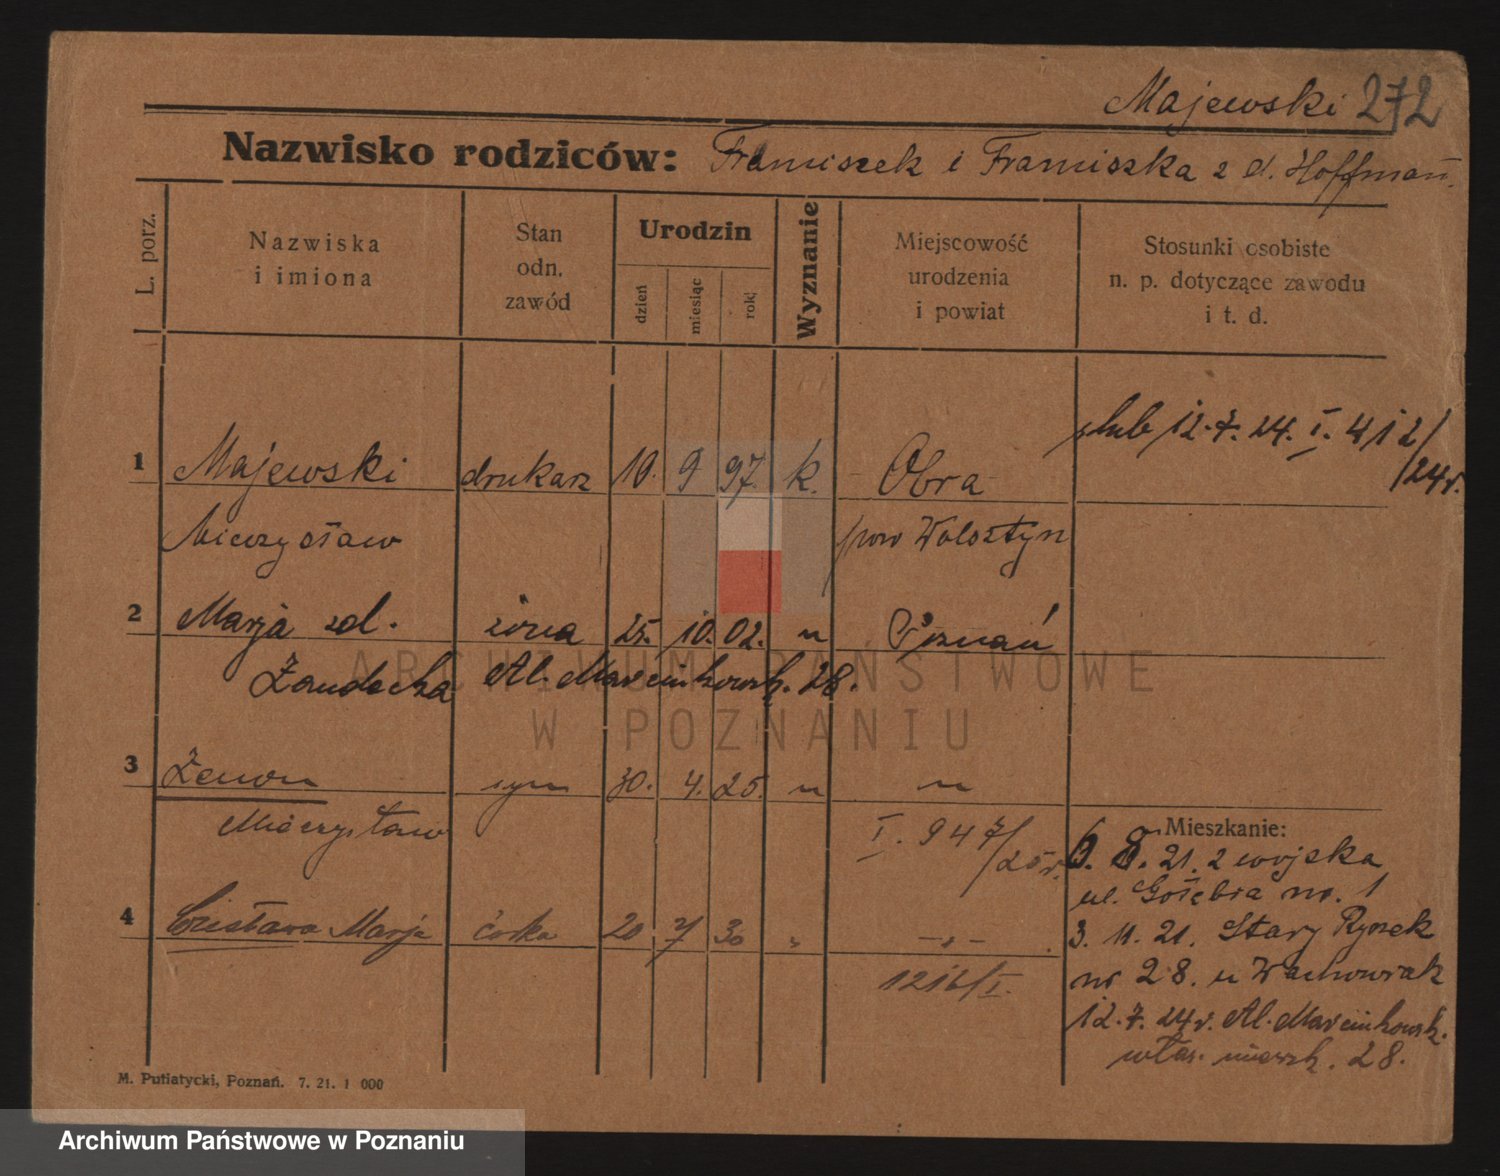 Majewski 272
Nazwisko rodziców: Franciszek i Franciszka z d. Hoffman
L. porz.
Nazwiska i imiona
Stan odn. zawód
Urodzin
dzień miesiąc rok
Wyznanie
Miejscowość urodzenia i powiat
Stosunki osobiste n. p. dotyczące zawodu i t. d.
ślub 12.7.24. I. 412/24r.
1 Majewski drukarz 10. 9 97. k. Obra
Mieczysław pow Wolsztyn
2 Marja zd. żona 25. 10. 02. " Poznań
Żandecka Al. Marcinkowsk. 28.
3 Zenon syn 30. 4. 25. " "
Mieczysław I. 947/25r.
Mieszkanie:
6. 8. 21. z wojska
ul. Gołębia nr. 1
4 Marja córka 20 7 30 " -"-
3. 11. 21. Stary Rynek
nr 28. u Wachowiak
1216/I.
12.7.24r. Al. Marcinkowsk.
włas. mieszk. 28.
M. Putiatycki, Poznań. 7. 21. 1 000
ARCHIWUM PAŃSTWOWE
W POZNANIU
Archiwum Państwowe w Poznaniu